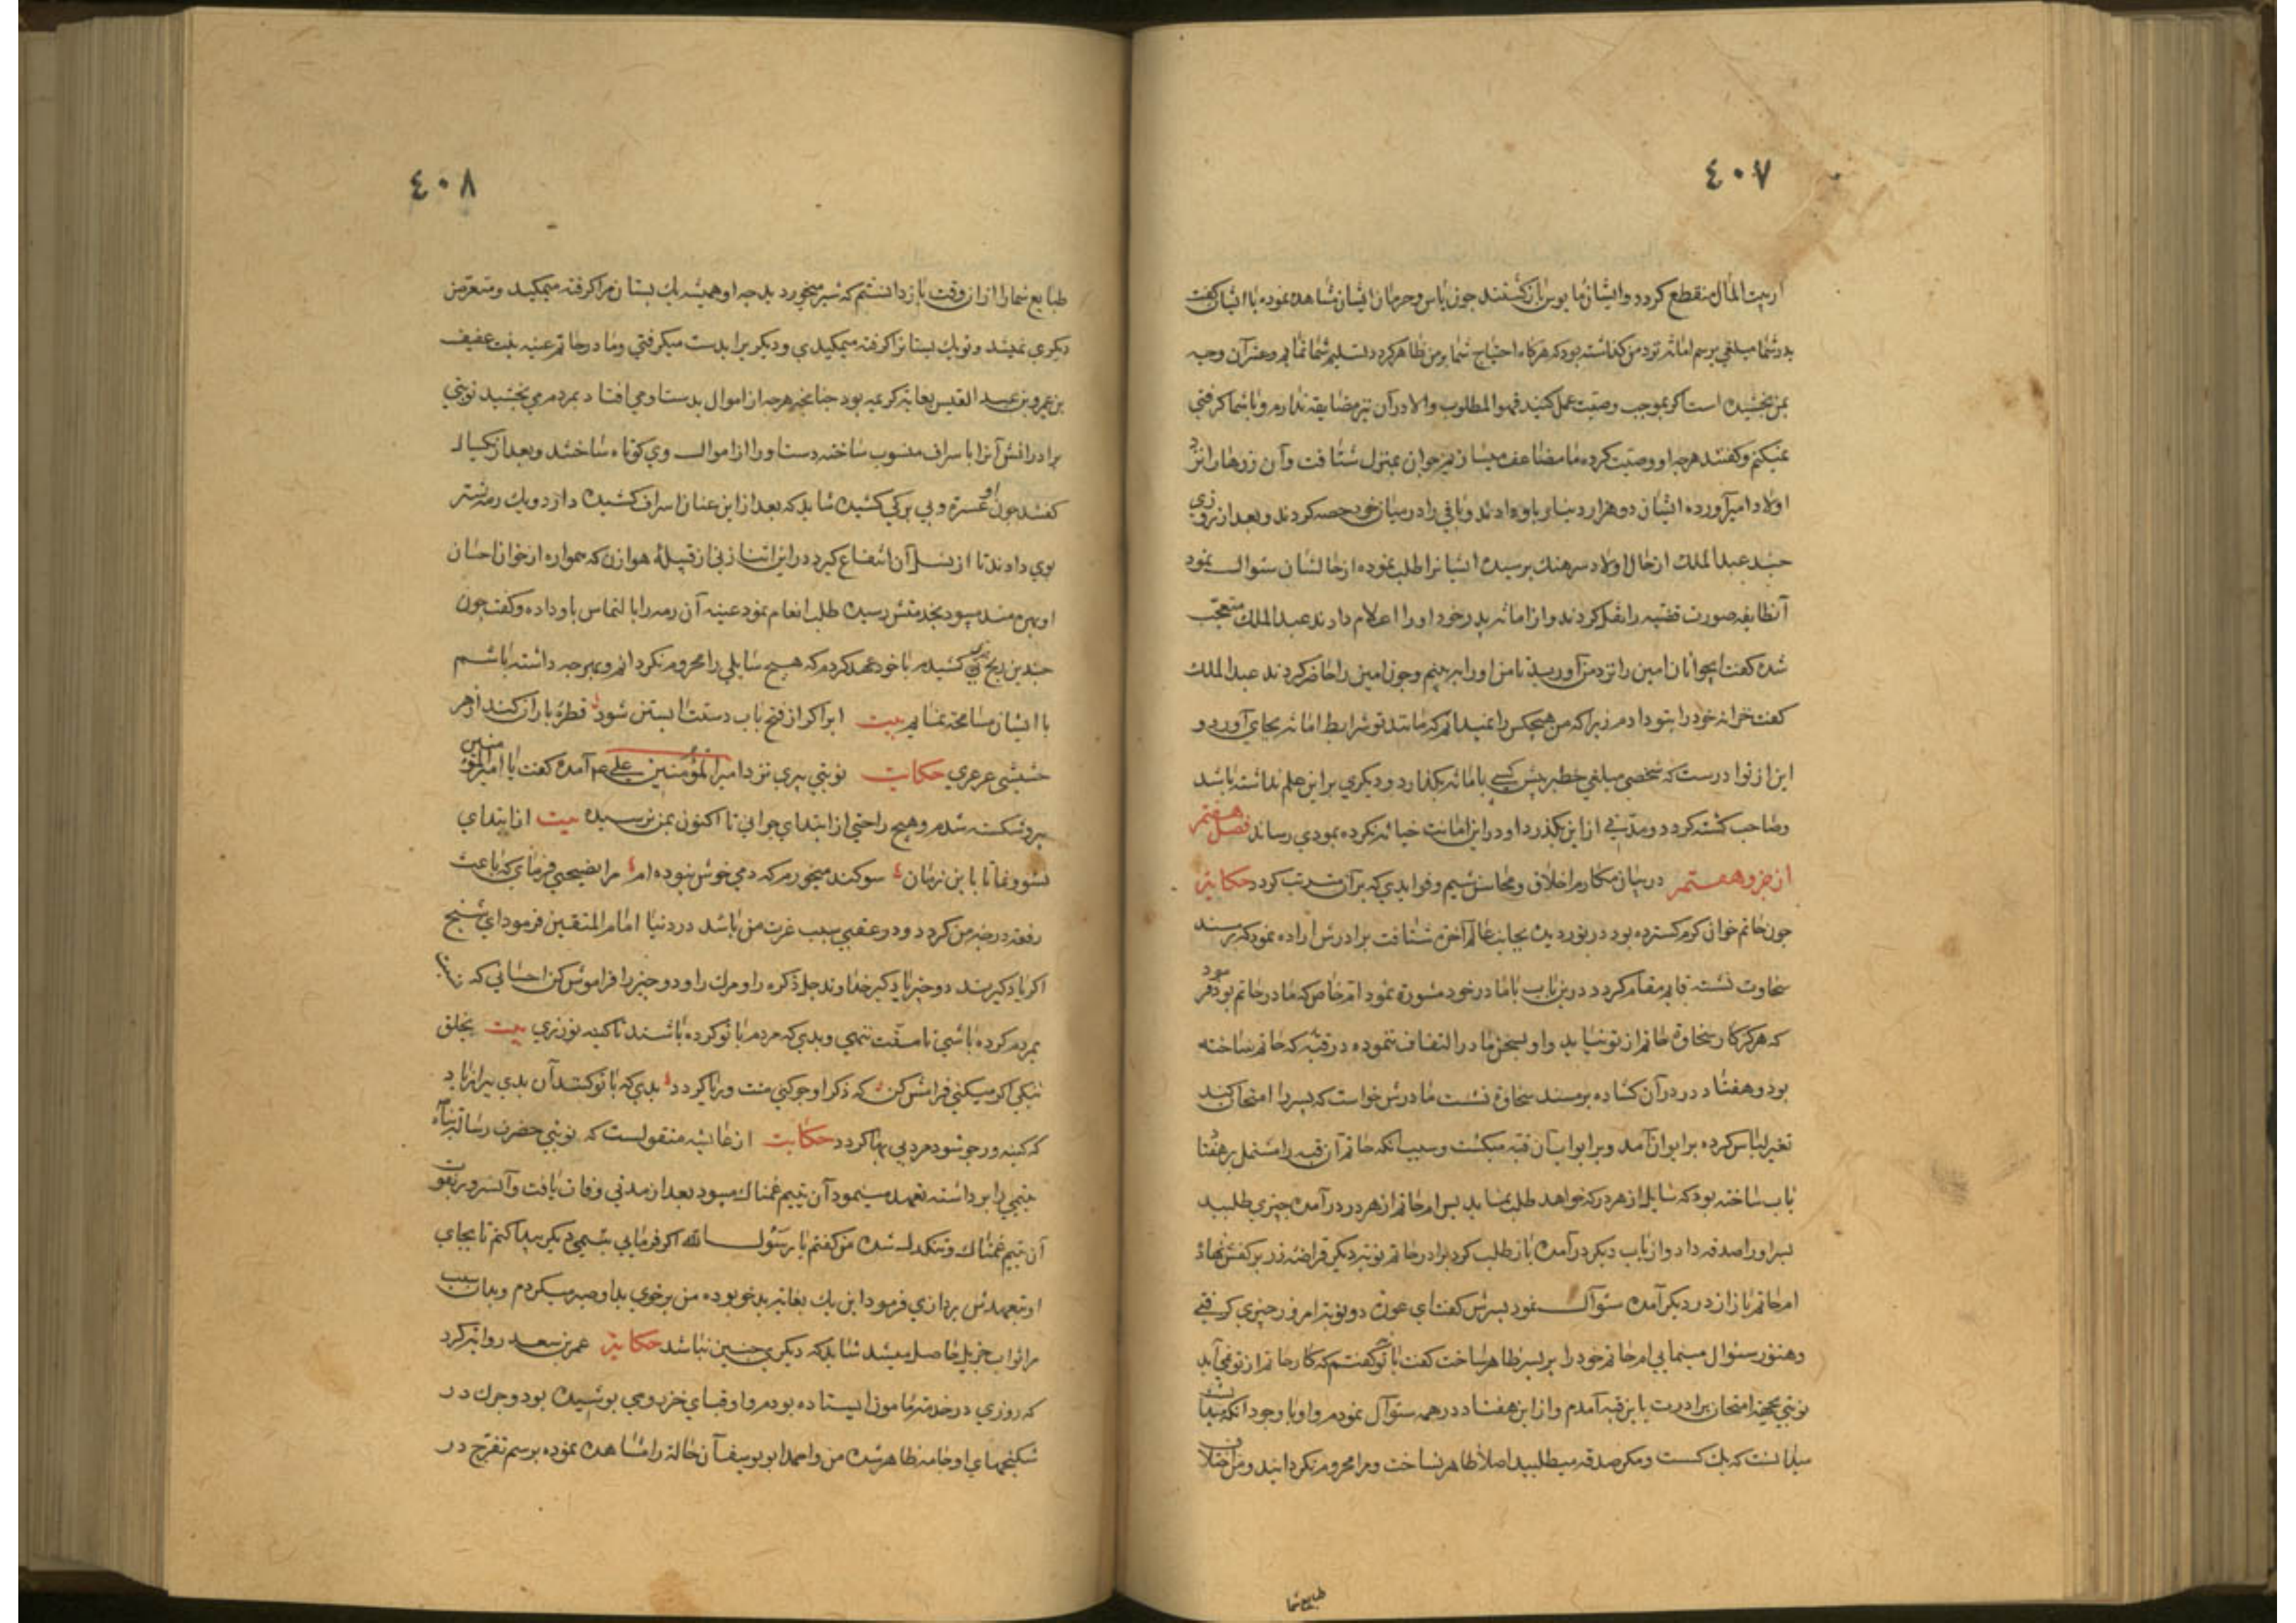 ٤٠٧
از بیت المال منقطع کردد وایشان مایوس بازکشتند چون یاس وحرمان ایشان مشاهده نموده با ایشان کفت
پدر شما مبلغی برسم امانة نزد من کذاشته بود که هرکاه احتیاج شما بر من ظاهر کردد تسلیم شما نمایم وعشر آن وجه
بمن بخشیده است اکر بموجب وصیت عمل کنید فهو المطلوب والا در آن نیز مضایقه ندارم وبا شما کرفتی
نمیکنم وکفتند هرچه او وصیت کرده ما مضاعف میسازیم جوان بمنزل شتافت وآن زرها را نزد
اولاد امیر آورده ایشان دو هزار دینار باو دادند وباقی را در میان خود حصه کردند وبعد از روزی
چند عبدالملك از حال اولاد سرهنك پرسیده ایشانرا طلب نموده از حالشان سئوال نمود
آنطایفه صورت قضیه را نقل کردند واز امانة پدر خود او را اعلام دادند عبدالملك متعجب
شده کفت ایجوانان امین را نزد من آورید تا من او را ببینم وچون امین را حاضر کردند عبدالملك
کفت خزانه خود را بتو دادم زیرا که من هیچکس را نمیدانم که مانند تو شرایط امانة بجای آورد و
این از نوادرست که شخصی مبلغی خطیر پیش کسی بامانة بکذارد ودیکری بر این علم نداشته باشد
وصاحب کشته کردد ومدتی از این بکذرد او در این امانت خیانة نکرده بمودی رساند فصل هفتم
از جزو هفتم در بیان مکارم اخلاق ومحاسن شیم وفوایدی که بر آن مترتب کردد حکایة
چون حاتم خوان کرم کسترده بود در نوردیده بجانب عالم آخرة شتافت برادرش اراده نمود که بر مسند
سخاوت نشسته قایم مقام کردد در این باب با مادر خود مشورة نمود ام خاص که مادر حاتم بود فرمود
که هرکز کار سخاوة حاتم از تو نیاید واو بسخن مادر التفات ننموده در قبه که حاتم ساخته
بود وهفتاد در در آن کشاده بر مسند سخاوة نشست مادرش خواست که پسر را امتحان کند
تغیر لباس کرده بر ایوان آمد وبر ابواب آن قبه میکشت وسبب انکه حاتم آن قبه را مشتمل بر هفتاد
باب ساخته بود که سایل از هر در که خواهد طلب نماید پس ام حاتم از هر در در آمده چیزی طلبید
پسر او را صدقه داد واز باب دیکر در آمده باز طلب کرد برادر حاتم نوبة دیکر قراضه زر بر کفش نهاد
ام حاتم باز از در دیکر آمده سئوال نمود پسرش کفت ای عورت دو نوبة امروز چیزی کرفتی
وهنوز سئوال مینمایی ام حاتم خود را بر پسر ظاهر ساخت کفت با تو کفتم که کار حاتم از تو نمی آید
نوبتی بجهة امتحان برادرت باین قبه آمدم واز این هفتاد در همه سئوال نمودم واو با وجود انکه
میدانست که یك کست ومکرر صدقه میطلبید اصلا ظاهر نساخت ومرا محروم نکردانید ومن اختلاف
طبایع شما
٤٠٨
طبایع شما را از ان وقت باز دانستم که شیر میخورد بد چه او همیشه یك پستان مرا کرفته میمکید ومتعرض
دیکری نمیشد وتو یك پستانرا کرفته میمکیدی ودیکر برا بدست میکرفتی ومادر حاتم عنبه بنت عفیف
بن عمرو بن عبد القیس بغایة کریمه بود چنانچه هرچه از اموال بدست او می افتاد بمردم می بخشید نوبتی
برادرانش آنرا باسراف منسوب ساخته دست او را از اموال وی کوتاه ساختند وبعد از یکسال
کفتند چون او عسرة وبی برکی کشیده شاید که بعد از این عنان از اسراف کشیده دارد ویك رمه شتر
بوی دادند تا از نسل آن انتفاع کیرد در این اثنا زنی از قبیلهٔ هوازن که همواره از خوان احسان
او بهره مند میبود بخدمتش رسیده طلب انعام نمود عینه آن رمه را با لتماس باو داده وکفت چون
چندین رنج کشیدم با خود عهد کردم که هیچ سایلی را محروم نکردانم وبهرچه داشته باشم
با ایشان مسامحه نمایم بیت ابر اکر از فتح باب دستت ابستن شود قطرهٔ باران کند از هر
خشبثی عرعری حکایت نوبتی پیری نزد امیر المؤمنین علی عم آمده کفت یا امیر المؤمنین
پیر وشکسته شدم وهیچ راحتی از ابتدای جوانی تا اکنون بمن نرسیده بیت از ابتدای
نشوونما تا باین زمان سوکند میخورم که دمی خوش نبوده ام مرا نصیحتی فرمای که باعث
رفعة درجه من کردد ودر عقبی سبب عزت من باشد در دنیا امام المتقین فرمود ای شیخ
اکر یاد کیرند دو چیز یاد کیر خداوند جل ذکره را ومرك را ودو چیز را فراموش کن احسانی که
بمردم کرده باشی تا منّت ننهی وبدیی که مردم با تو کرده باشند تا کینه نورزی بیت بخلق
نیکی اکر میکنی فرامش کن که ذکر او چو کنی منت وریا کردد بدیی که با تو کنند آن بدی ببر از یاد
که کینه ور چو شود مرد بی بها کردد حکایت از عایشه منقولست که نوبتی حضرت رسالة پناه
یتیمی را بر داشته تعهد مینمود آن یتیم غمناك میبود بعد از مدتی وفات یافت وآنسرور بفوت
آن یتیم غمناك وتنکدل شده من کفتم یا رسول الله اکر فرمایی یتیمی دیکر پیدا کنم تا بجای
او بتعهدش پردازی فرمود این یك بغایة بدخو بوده من بر خوی بد او صبر میکردم وبدان سبب
مرا ثواب جزیل حاصل میشد شاید که دیکری چنین نباشد حکایة عمر بن سعد روایة کرد
که روزی در خدمة مامون ایستاده بودم واو قبای خز رومی پوشیده بود وچرك در
شکنجهای او جامه ظاهر شده من واحمد ابو یوسف آن حالة را مشاهده نموده برسم تفرج در